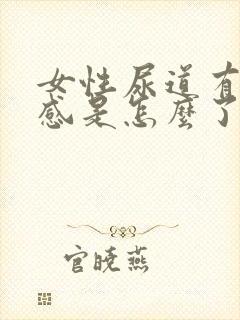 女性尿道有
感是怎麼了
官晓燕